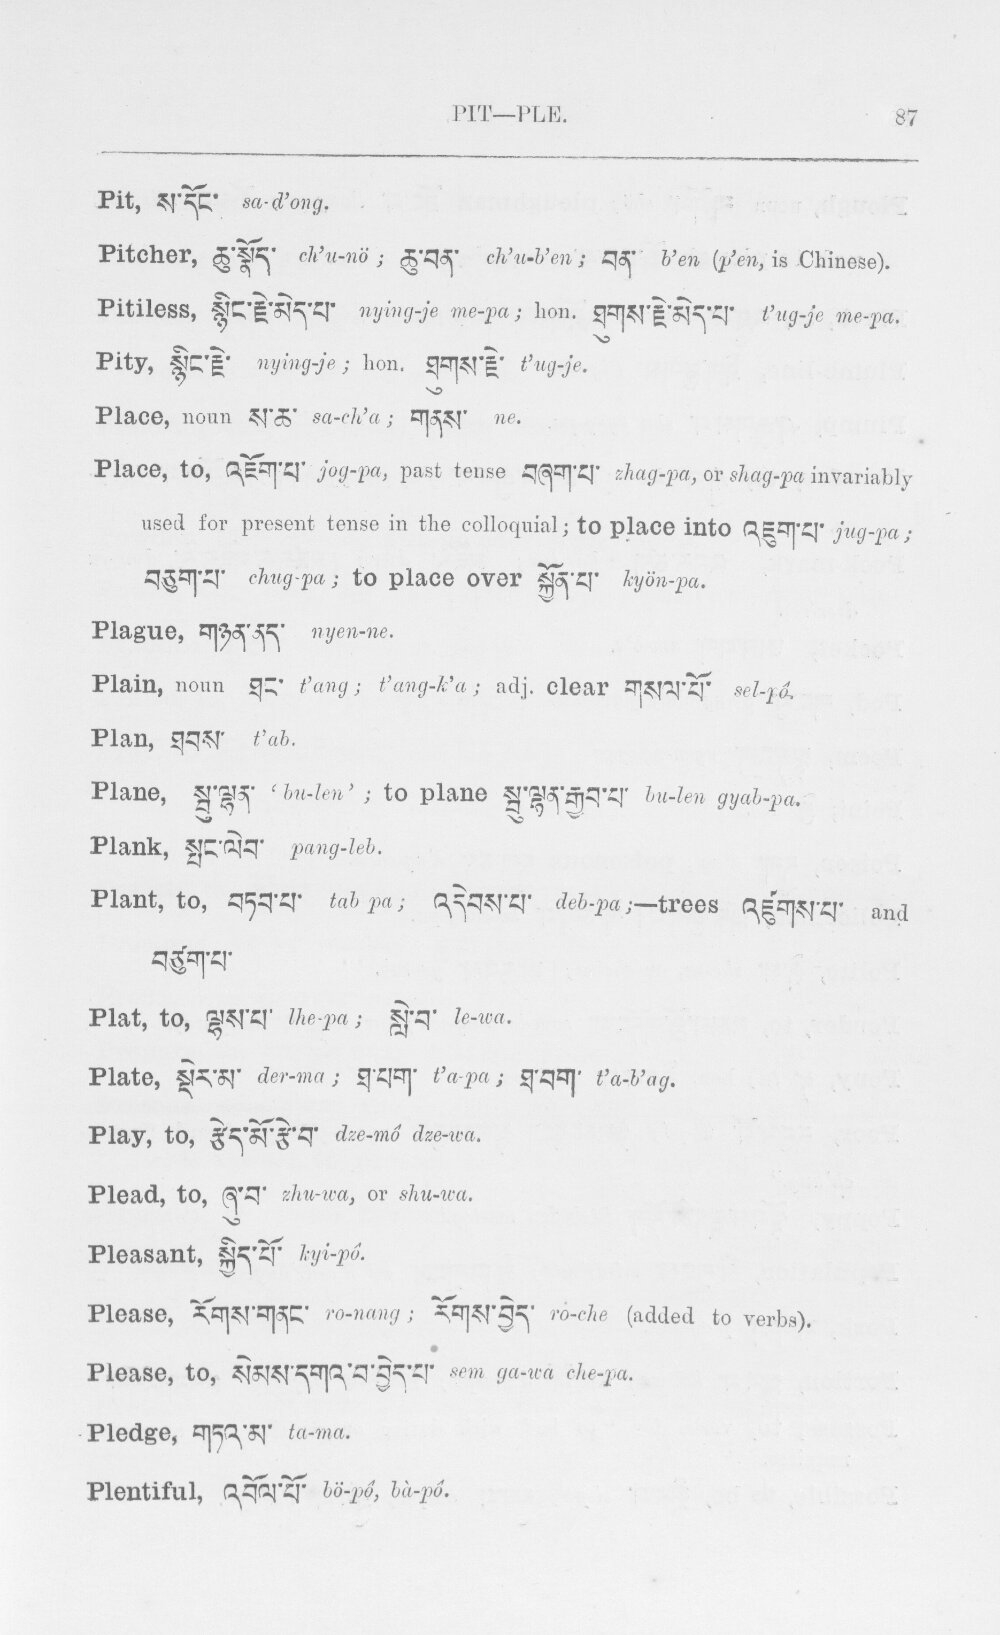 PIT—PLE. 87
Pit, ས་དོང་ sa-d’ong.
Pitcher, ཆུ་སྣོད་ ch’u-nö ; ཆུ་བན་ ch’u-b’en ; བན་ b’en (p’en, is Chinese).
Pitiless, སྙིང་རྗེ་མེད་པ་ nying-je me-pa ; hon. ཐུགས་རྗེ་མེད་པ་ t’ug-je me-pa.
Pity, སྙིང་རྗེ་ nying-je ; hon. ཐུགས་རྗེ་ t’ug-je.
Place, noun ས་ཆ་ sa-ch’a ; གནས་ ne.
Place, to, འཇོག་པ་ jog-pa, past tense བཞག་པ་ zhag-pa, or shag-pa invariably
used for present tense in the colloquial ; to place into འཇུག་པ་ jug-pa ;
བཅུག་པ་ chug-pa ; to place over སྐྱོན་པ་ kyön-pa.
Plague, གཉན་ནད་ nyen-ne.
Plain, noun ཐང་ t’ang ; t’ang-k’a ; adj. clear གསལ་པོ་ sel-pó.
Plan, ཐབས་ t’ab.
Plane, སྦུ་ལྷན་ ‘bu-len’ ; to plane སྦུ་ལྷན་རྒྱབ་པ་ bu-len gyab-pa.
Plank, སྤང་ལེབ་ pang-leb.
Plant, to, བཏབ་པ་ tab pa ; འདེབས་པ་ deb-pa ;—trees འཛུགས་པ་ and
བཙུག་པ་
Plat, to, ལྷས་པ་ lhe-pa ; སླེ་བ་ le-wa.
Plate, སྡེར་མ་ der-ma ; ཐ་པག་ t’a-pa ; ཐ་བག་ t’a-b’ag.
Play, to, རྩེད་མོ་རྩེ་བ་ dze-mó dze-wa.
Plead, to, ཞུ་བ་ zhu-wa, or shu-wa.
Pleasant, སྐྱིད་པོ་ kyi-pó.
Please, རོགས་གནང་ ro-nang ; རོགས་བྱེད་ ró-che (added to verbs).
Please, to, སེམས་དགའ་བ་བྱེད་པ་ sem ga-wa che-pa.
Pledge, གཏའ་མ་ ta-ma.
Plentiful, འབོལ་པོ་ bö-pó, bà-pó.